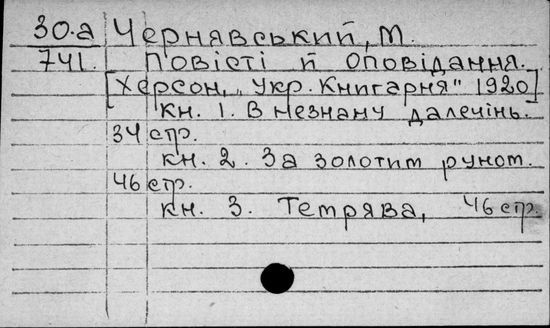 30.а Чернявський, М.
741. Повісті й оповідання.
[Херсон, „Укр. Книгарня" 1920]
кн. 1. В незнану далечінь.
34 стр.
кн. 2. За золотим руном.
46 стр.
кн. 3. Тетрява, 46 стр.